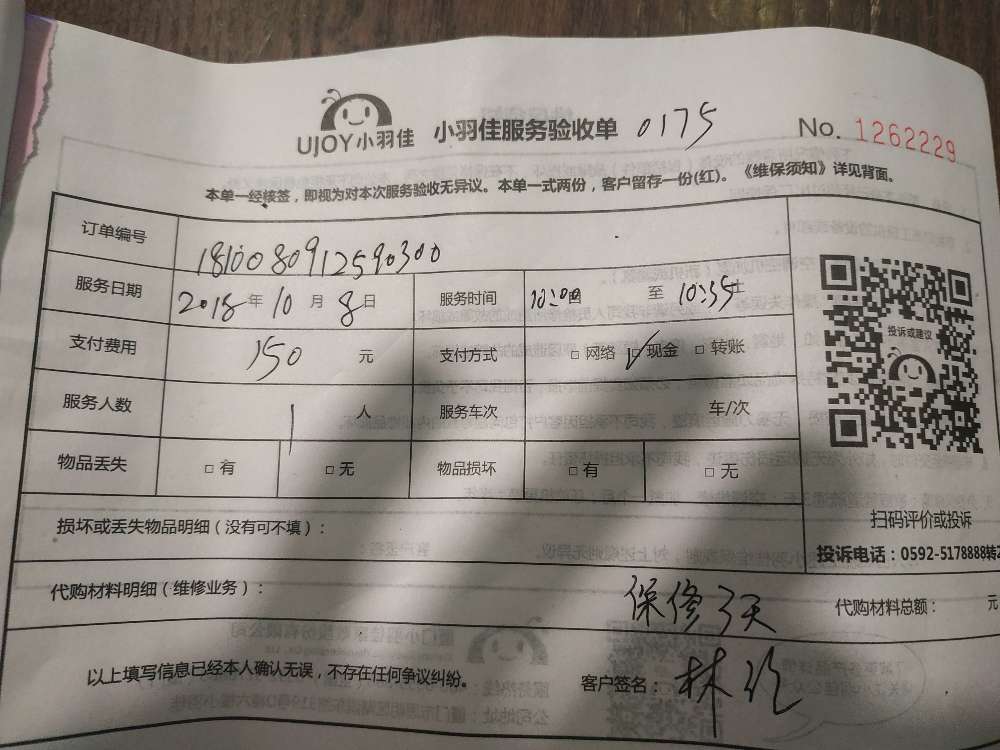 UJOY小羽佳 小羽佳服务验收单 0175 No. 1262229
本单一经核签，即视为对本次服务验收无异议。本单一式两份，客户留存一份(红)。《维保须知》详见背面。
订单编号 1810080912590300
服务日期 2018年10月8日 服务时间 10:00 至 10:35
支付费用 150 元 支付方式 □ 网络 ☑ 现金 □ 转账
服务人数 1 人 服务车次 车/次
物品丢失 □ 有 □ 无 物品损坏 □ 有 □ 无
投诉或建议
扫码评价或投诉
投诉电话：0592-5178888转2
损坏或丢失物品明细（没有可不填）：
代购材料明细（维修业务）： 保修3天 代购材料总额： 元
以上填写信息已经本人确认无误，不存在任何争议纠纷。 客户签名： 林